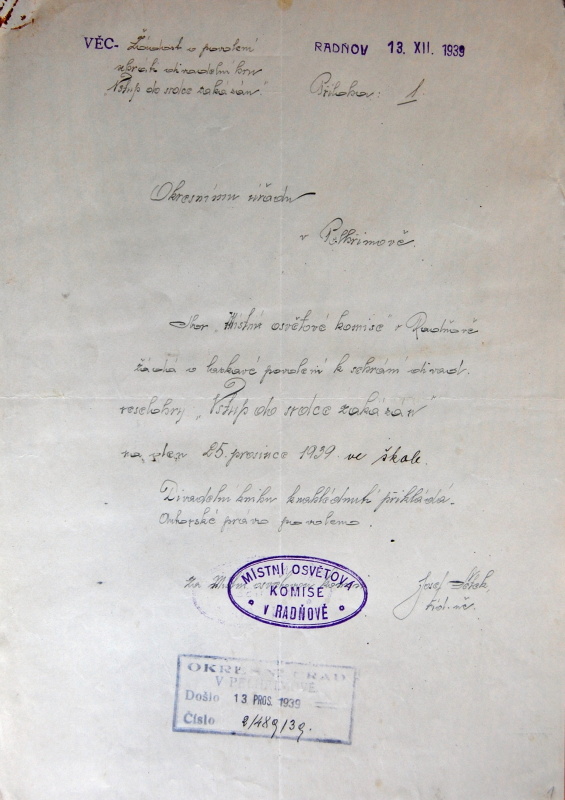 VĚC- Žádost o povolení
RADŇOV 13. XII. 1939
divadelní hry
"Vstup do srdce zakázán"
Příloha: 1
Okresnímu úřadu
v Pelhřimově.
Sbor "Místní osvětové komise" v Radňově
žádá o laskavé povolení k sehrání divad.
veselohry "Vstup do srdce zakázán"
na den 25. prosince 1939 ve škole.
Divadelní knihu k nahlédnutí přikládá.
Autorské právo povoleno.
Za Místní osvětovou komisi
MÍSTNÍ OSVĚTOVÁ
KOMISE
V RADŇOVĚ
Josef
OKRESNÍ ÚŘAD
V PELHŘIMOVĚ
Došlo 13 PROS. 1939
Číslo 2/489/39.
1